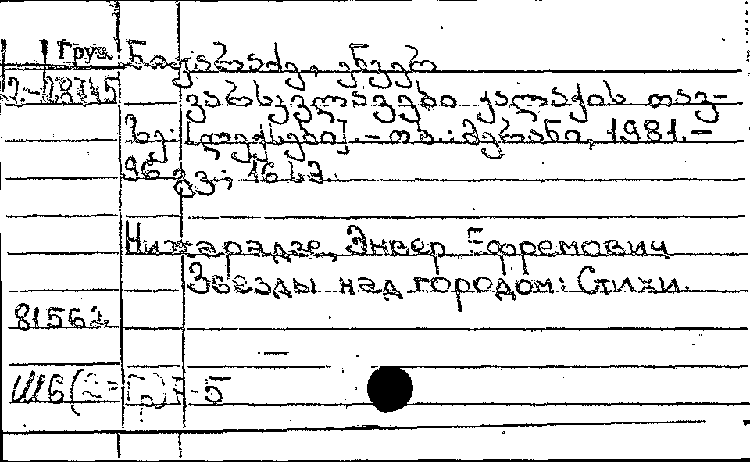 Груз. ნიჟარაძე, ენვერ
2.-28745 ვარსკვლავები ქალაქის თავ-
ზე: [ლექსები]. – თბ.: მერანი, 1981. –
96 გვ.; 16 სმ.
Нижарадзе, Энвер Ефремович
Звезды над городом: Стихи.
81562
Ш6(2=Гр)7-5